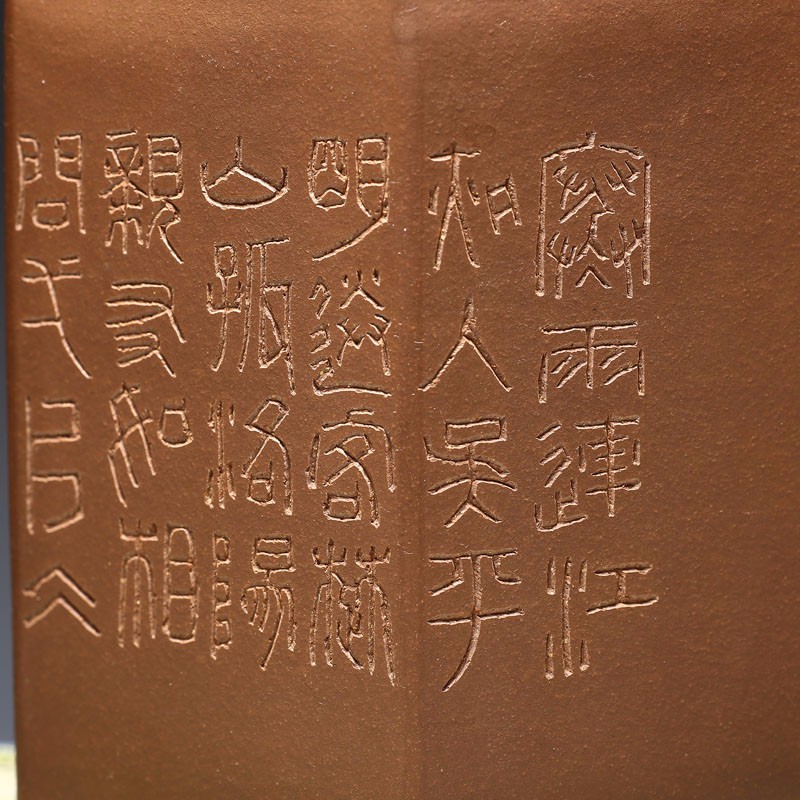 寒雨連江
夜入吳平
明送客楚
山孤洛陽
親友如相
問弌片仌